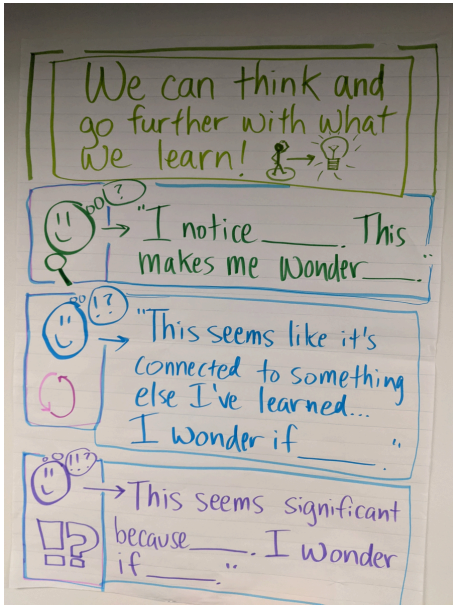 We can think and
go further with what
we learn!
?
"I notice ____. This
makes me wonder____."
!?
"This seems like it's
connected to something
else I've learned...
I wonder if ____."
!!?
This seems significant
because____. I wonder
if ____."
!?